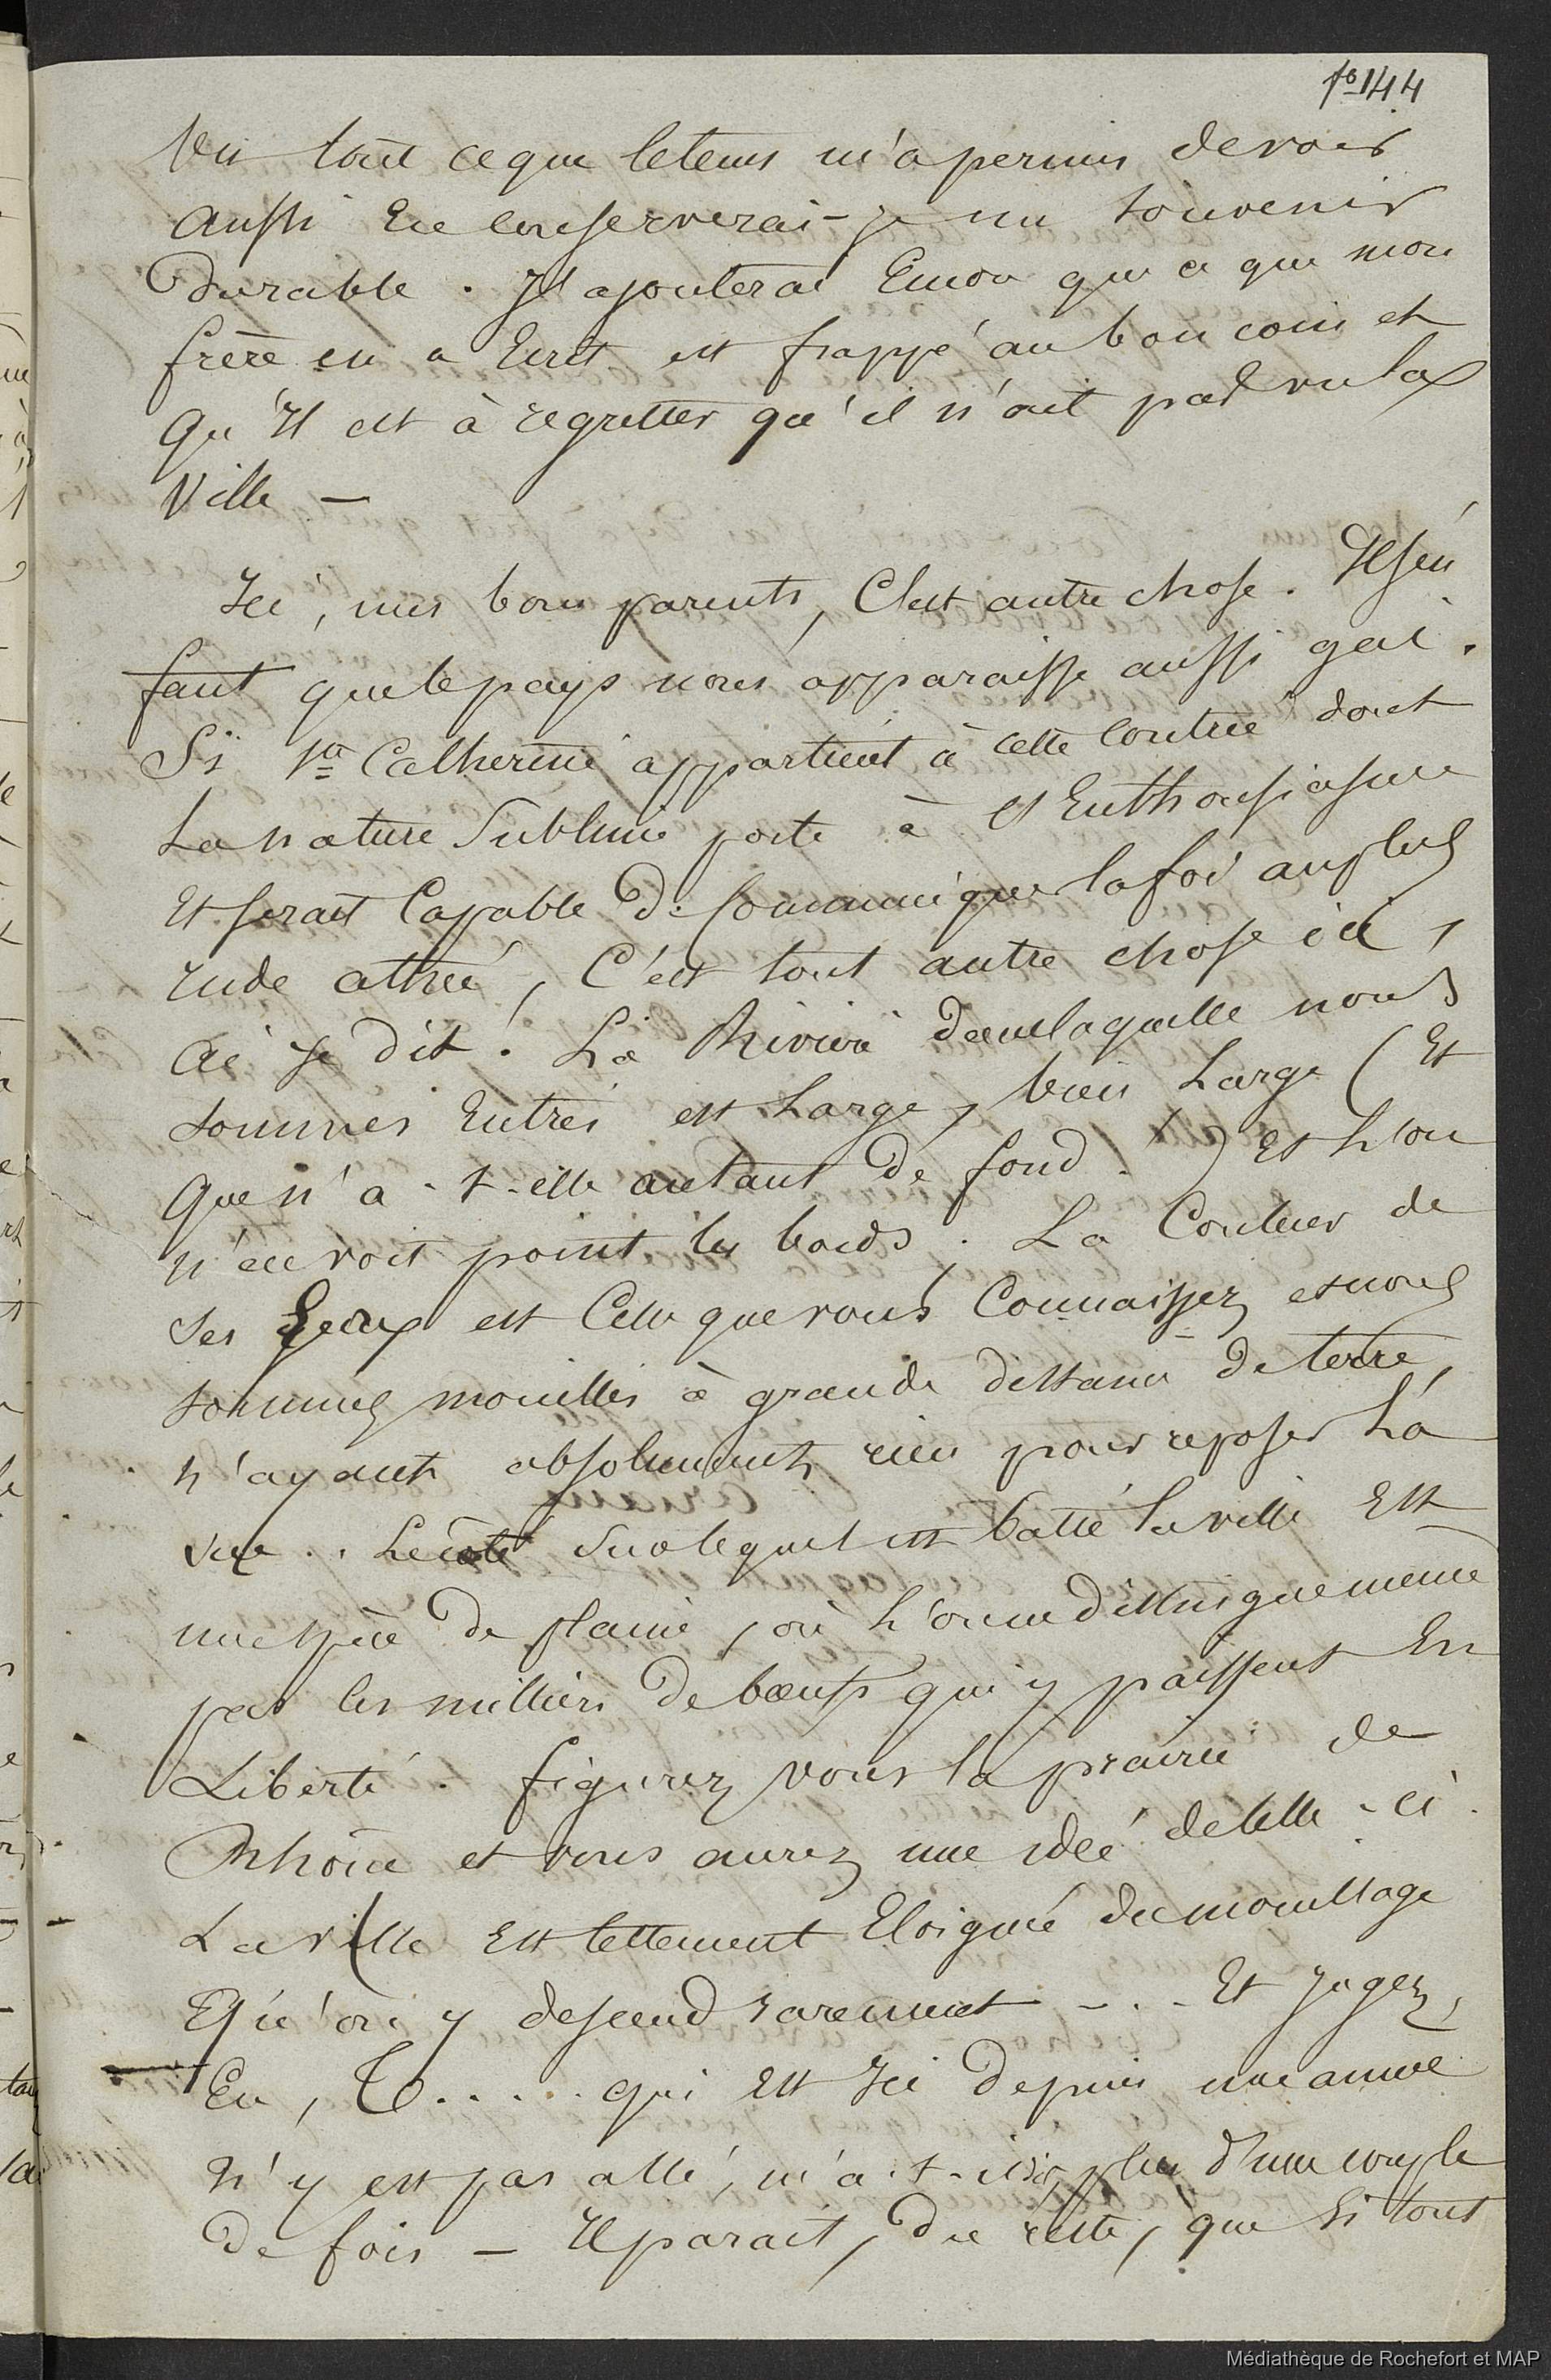 fo 144
Vu tout ce que le tems m'a permis de voir
Aussi En conserverai-je un souvenir
Durable. J'ajouterai Encor que ce que mon
frère en a Ecrit est frappé au bon coin et
Qu'Il est à regretter qu'il n'ait pas vu la
Ville —
Ici, mes bons parents, C'est autre chose. Il s'en
faut que le pays nous apparaisse aussi gai.
Si Ste Catherine appartient à cette Contrée dont
La nature Sublime porte à l'Enthousiasme
Et serait Capable De Communiquer la foi au plus
rude athée, C'est tout autre chose ici,
ai-je dit. La Rivière dans laquelle nous
sommes Entrés est Large, bien Large (Et
Que n'a-t-elle autant de fond !) Et L'on
n'en voit point les bords. La Couleur de
ses Eaux est Celle que vous Connaissez et nous
sommes mouillés à grande distance de terre,
n'ayant absolument rien pour reposer La
vue.. Le côté Sur lequel est batie la ville Est
une espèce De plaine, où L'on ne distingue même
pas les milliers De bœufs qui y paissent En
Liberté. figurez vous la prairie de
Rhône et vous aurez une idée de celle-ci.
La ville Est tellement Eloignée du mouillage
Qu'on y descend rarement - . - Et jugez,
En, T..... qui Est Ici Depuis une année
N'y est pas allé, m'a-t-il dit, plus d'une couple
De fois — Il parait, Du reste, que si tout
Médiathèque de Rochefort et MAP